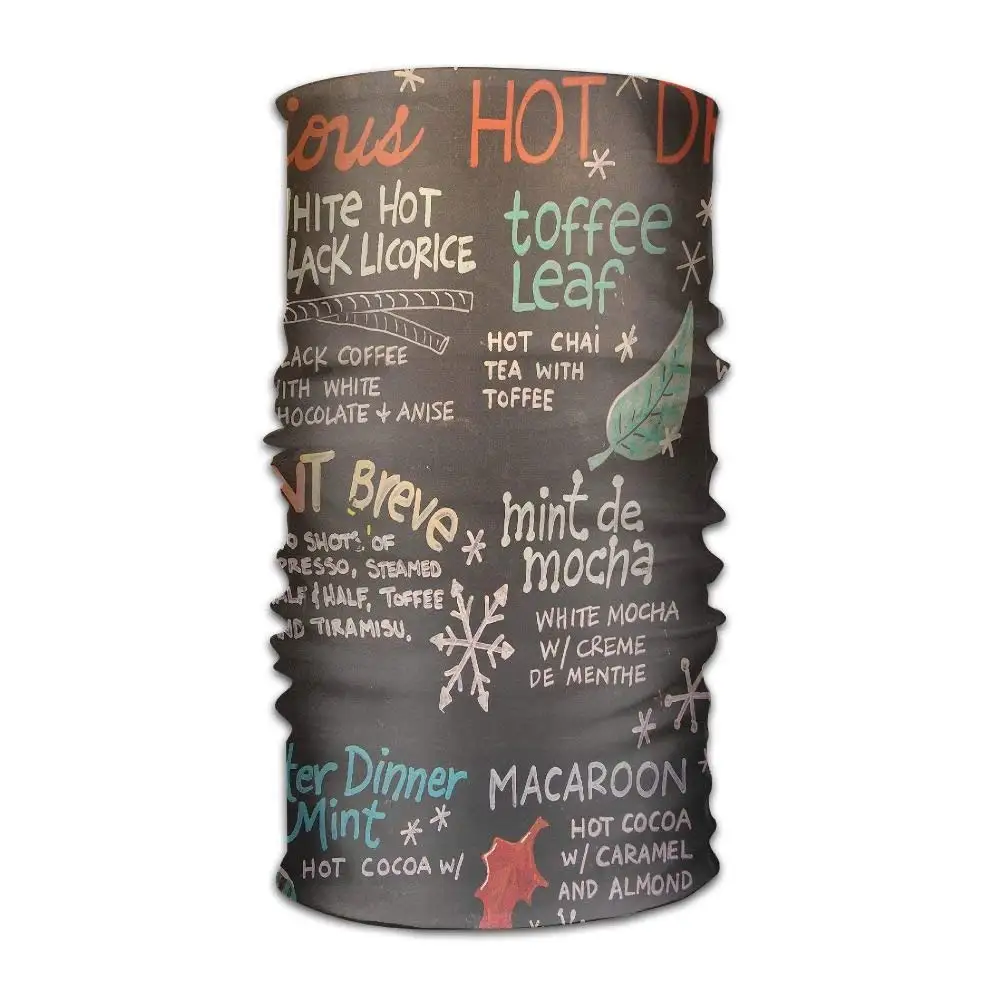 ious HOT DR
HITE HOT
LACK LICORICE
LACK COFFEE
ITH WHITE
HOCOLATE & ANISE
toffee
Leaf
HOT CHAI
TEA WITH
TOFFEE
NT Breve
O SHOTS OF
PRESSO, STEAMED
ALF & HALF, TOFFEE
ND TIRAMISU.
mint de
mocha
WHITE MOCHA
W/ CREME
DE MENTHE
ter Dinner
Mint
HOT COCOA W/
MACAROON
HOT COCOA
W/ CARAMEL
AND ALMOND